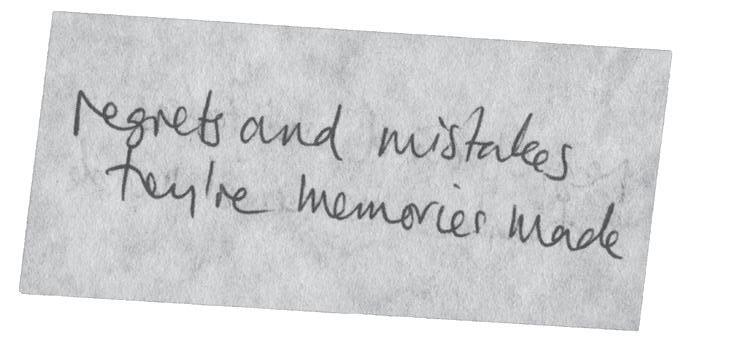 regrets and mistakes
they're memories made